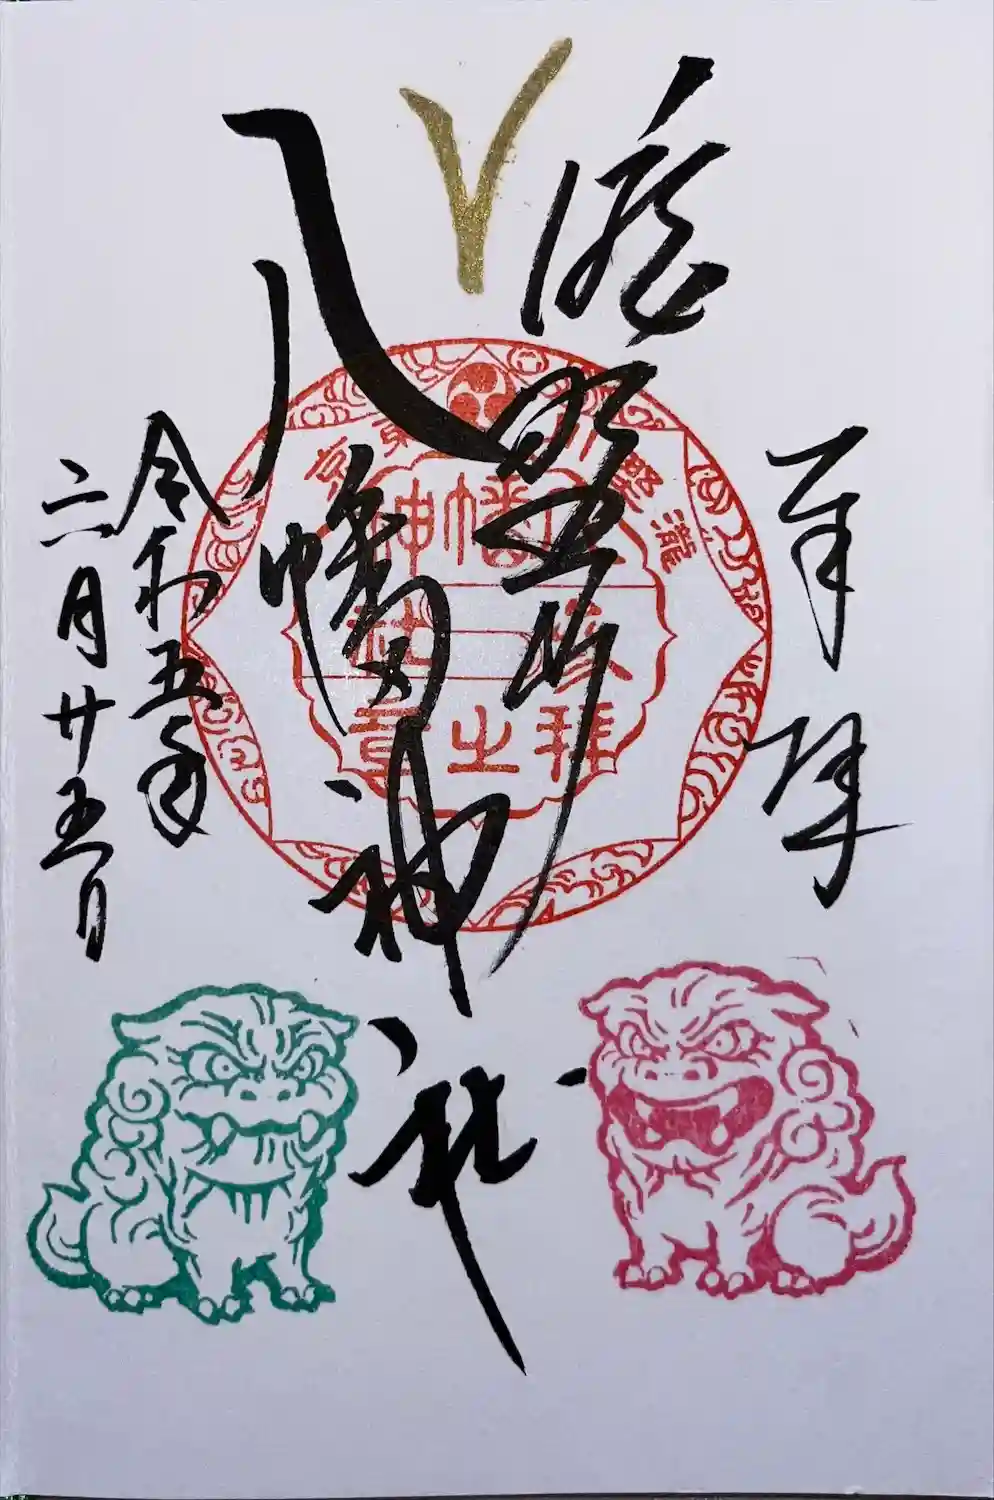 奉拝
瀧野川
八幡神社
令和五年
月廿五日
瀧野川
東京
八幡神社
参拝之章